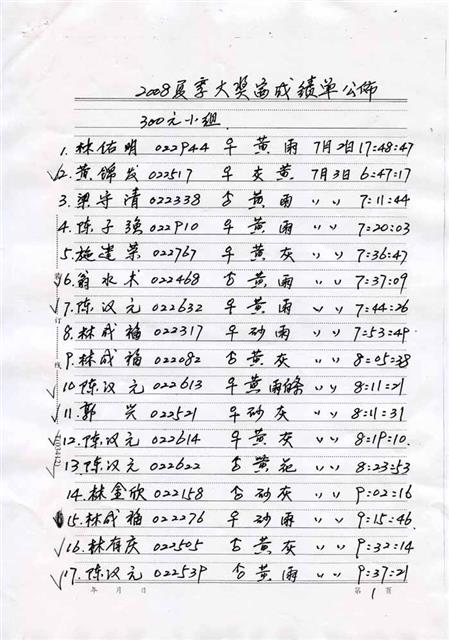 2008夏季大奖啚成绩单公佈
300元小组.
1. 林佑明 022944 早 黄 雨 7月2日 17:48:47
✓2. 黄锦发 022517 早 灰 黄 7月3日 6:47:17
3. 梁守清 022338 否 黄 雨 〃 〃 7:11:44
4. 陈子强 022910 早 黄 雨 〃 〃 7:20:03
5. 施建荣 022767 早 黄 灰 〃 〃 7:36:47
✓6. 翁水术 022468 否 黄 雨 〃 〃 7:37:09
✓7. 陈汉元 022632 早 黄 雨 〃 〃 7:44:26
8. 林成福 022317 早 砂 雨 〃 〃 7:53:49
9. 林成福 022082 否 黄 灰 〃 〃 8:05:38
✓10. 陈汉元 022613 早 黄 雨條 〃 〃 8:11:21
✓11. 郭 兴 022521 早 砂 灰 〃 〃 8:11:31
✓12. 陈汉元 022614 早 黄 灰 〃 〃 8:19:10
✓13. 陈汉元 022622 否 黄 花 〃 〃 8:23:53
14. 林金欣 022158 否 砂 灰 〃 〃 9:02:16
15. 林成福 022276 早 砂 雨 〃 〃 9:15:46
✓16. 林有庆 022505 否 黄 灰 〃 〃 9:32:14
✓17. 陈汉元 022539 否 黄 雨 〃 〃 9:37:21
年 月 日 第 1 页